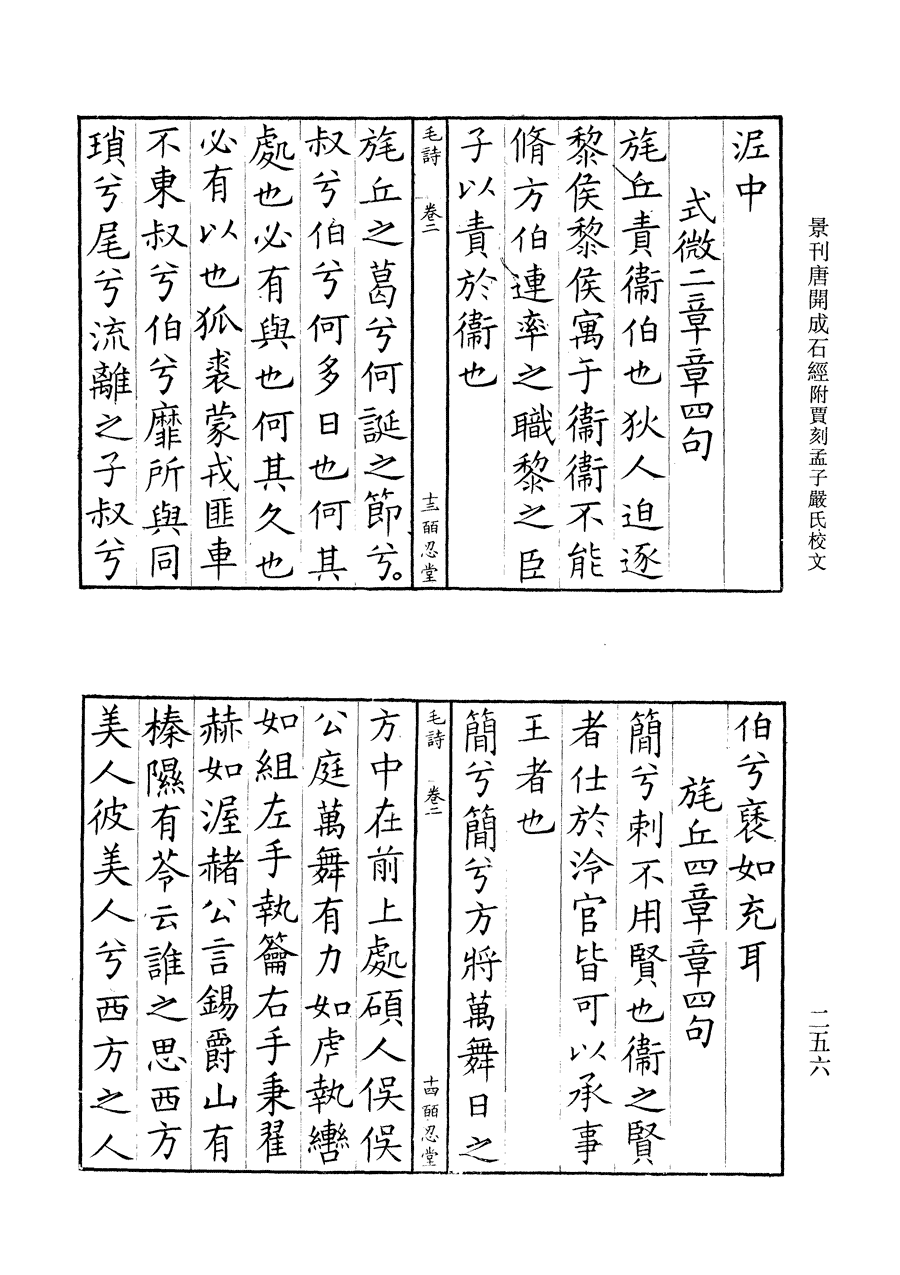 景刊唐開成石經附賈刻孟子嚴氏校文
泥中
式微二章章四句
旄丘責衞伯也狄人迫逐
黎侯黎侯寓于衞衞不能
脩方伯連率之職黎之臣
子以責於衞也
毛詩 卷二 十三 皕忍堂
旄丘之葛兮何誕之節兮。
叔兮伯兮何多日也何其
處也必有與也何其久也
必有以也狐裘蒙戎匪車
不東叔兮伯兮靡所與同
瑣兮尾兮流離之子叔兮
伯兮襃如充耳
旄丘四章章四句
簡兮刺不用賢也衞之賢
者仕於泠官皆可以承事
王者也
簡兮簡兮方將萬舞日之
毛詩 卷二 十四 皕忍堂
方中在前上處碩人俁俁
公庭萬舞有力如虎執轡
如組左手執籥右手秉翟
赫如渥赭公言錫爵山有
榛隰有苓云誰之思西方
美人彼美人兮西方之人
二五六